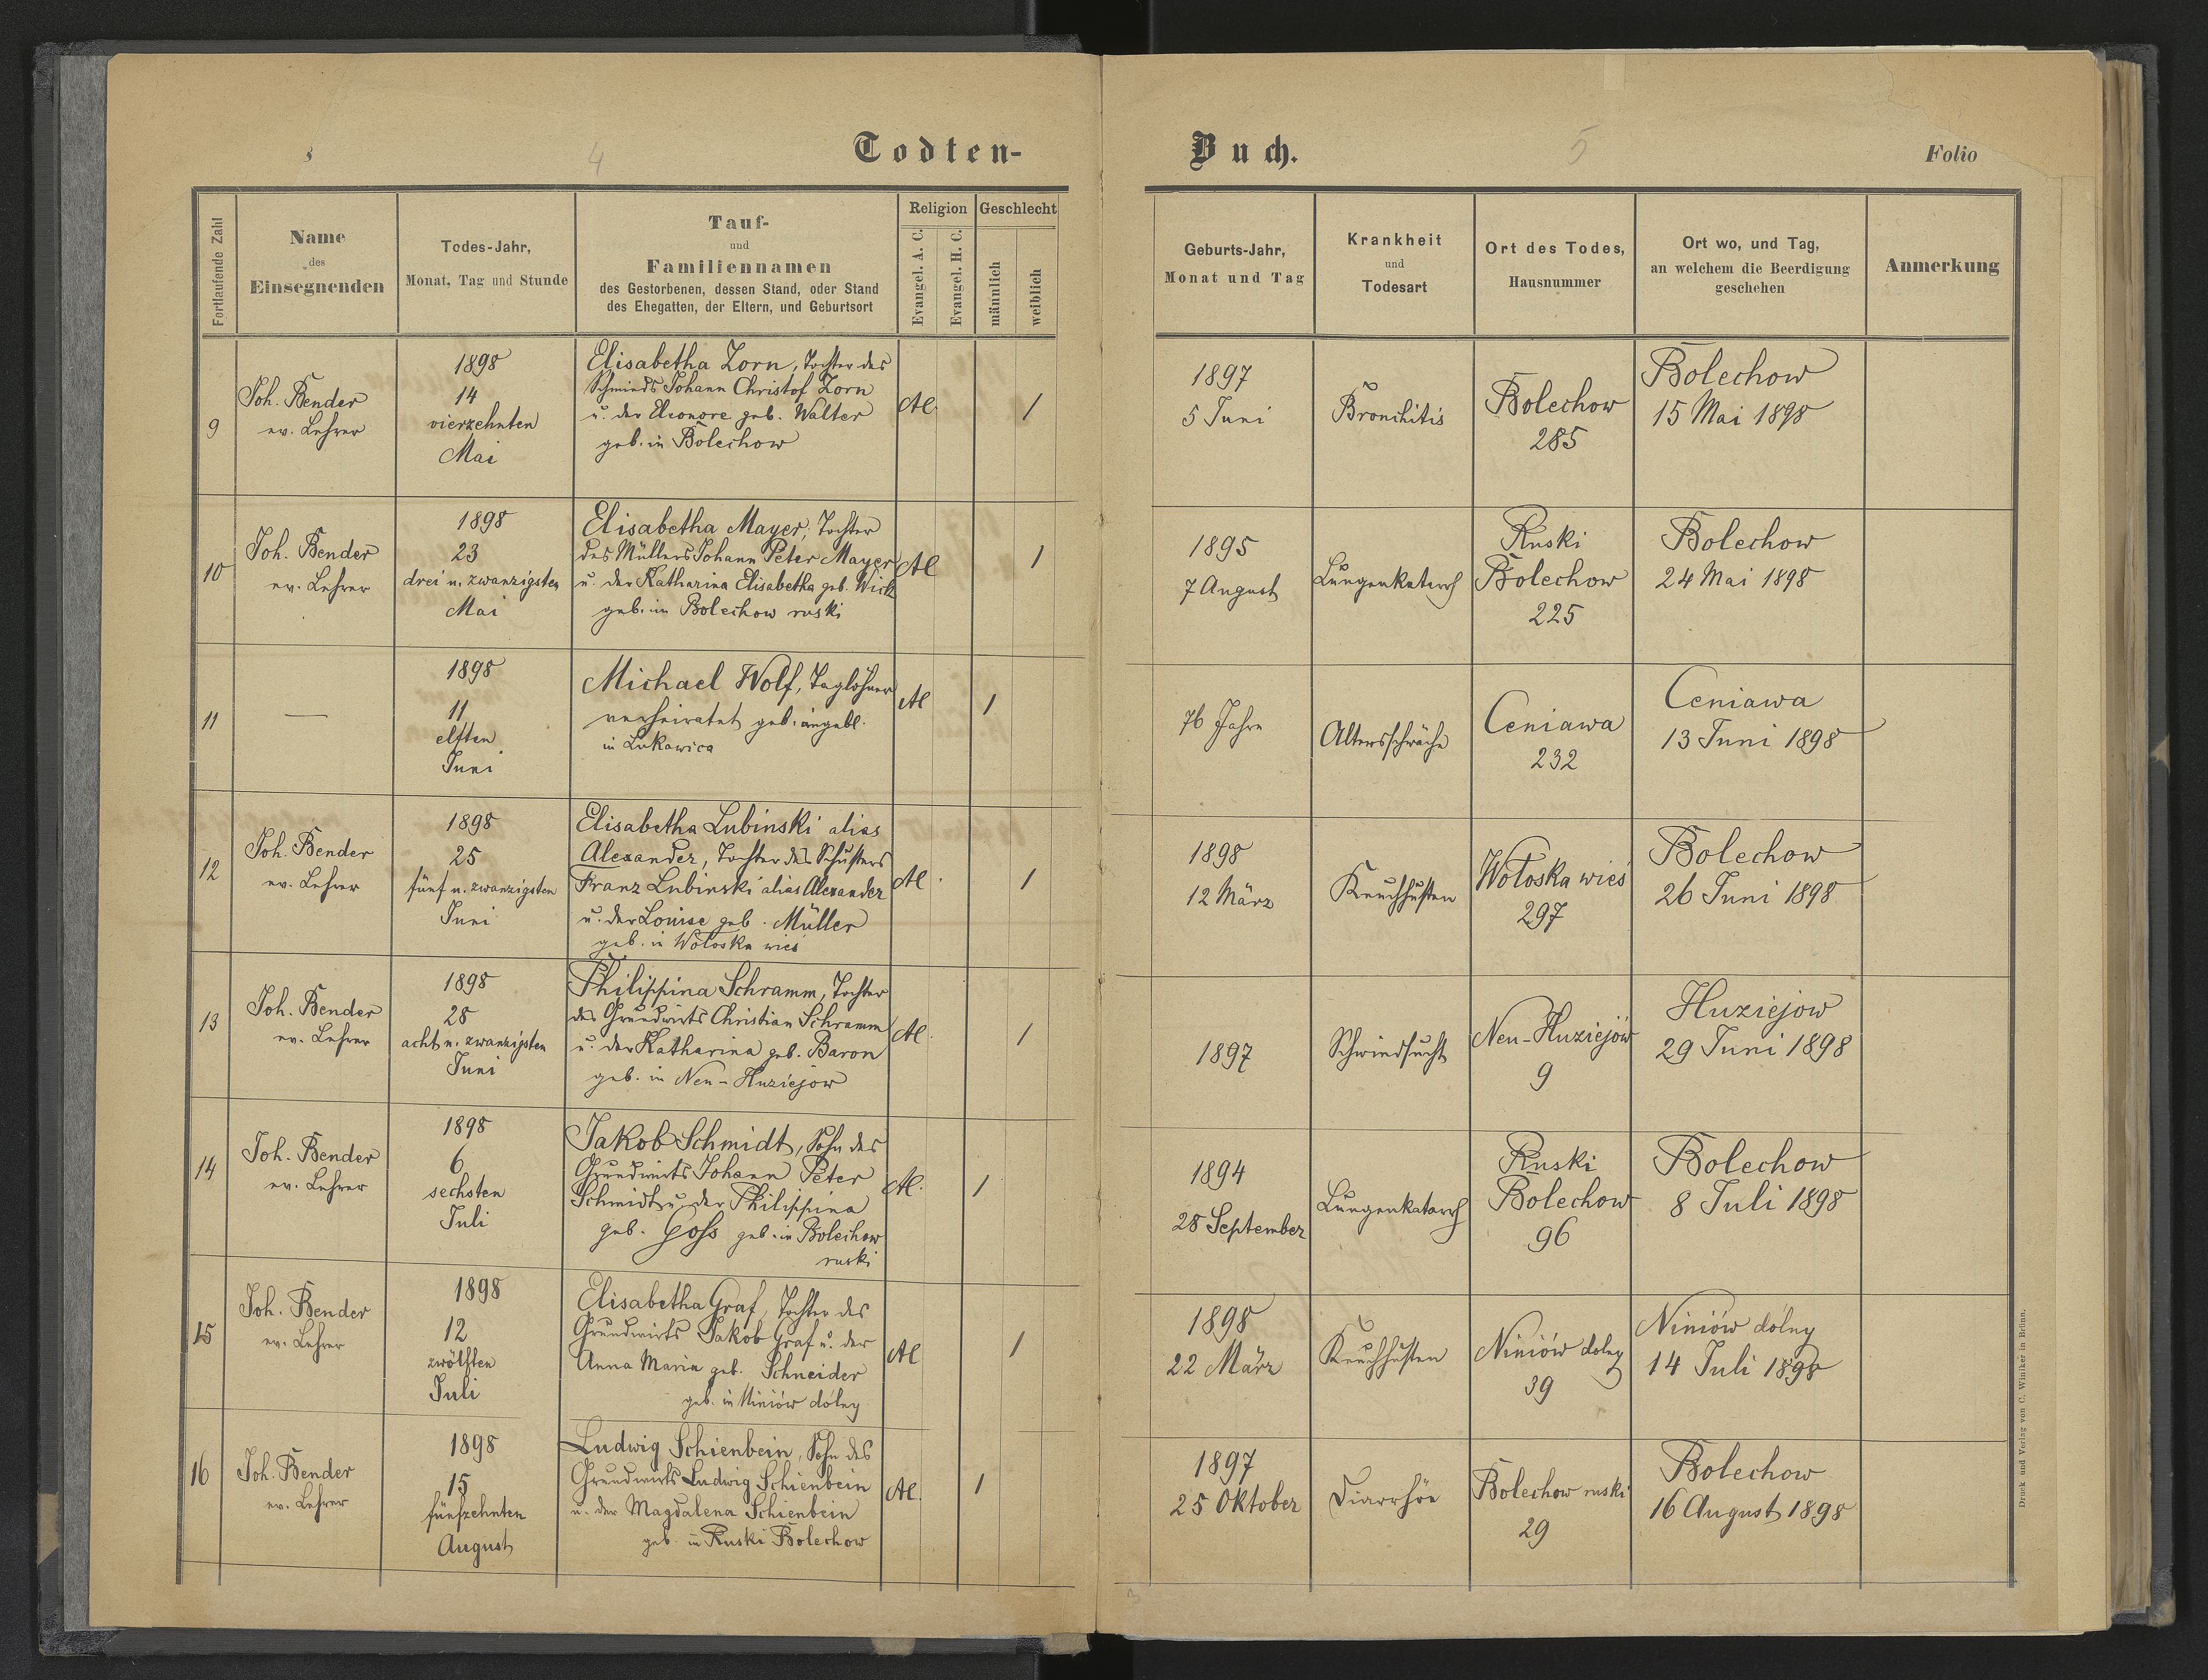 4
Todten-
Fortlaufende Zahl
Name
des
Einsegnenden
Todes-Jahr,
Monat, Tag und Stunde
Tauf-
und
Familiennamen
des Gestorbenen, dessen Stand, oder Stand
des Ehegatten, der Eltern, und Geburtsort
Religion
Evangel. A. C.
Evangel. H. C.
Geschlecht
männlich
weiblich
9
Joh. Bender
ev. Lehrer
1898
14
vierzehnten
Mai
Elisabetha Zorn, Tochter des
Schmieds Johann Christof Zorn
u. der Eleonore geb. Walter
geb. in Bolechow
1
10
Joh. Bender
ev. Lehrer
1898
23
drei u. zwanzigsten
Mai
Elisabetha Mayer, Tochter
des Müllers Johann Peter Mayer
u. der Katharina Elisabetha geb. Wick
geb. in Bolechow ruski
1
11
—
1898
11
elften
Juni
Michael Wolf, Taglöhner
verheiratet geb. angebl.
in Lukawica
1
12
Joh. Bender
ev. Lehrer
1898
25
fünf u. zwanzigsten
Juni
Elisabetha Lubinski alias
Alexander, Tochter des Schusters
Franz Lubinski alias Alexander
u. der Louise geb. Müller
geb. in Wołoska wieś
1
13
Joh. Bender
ev. Lehrer
1898
28
acht u. zwanzigsten
Juni
Philippina Schramm, Tochter
des Grundwirts Christian Schramm
u. der Katharina geb. Baron
geb. in Neu-Huziejow
1
14
Joh. Bender
ev. Lehrer
1898
6
sechsten
Juli
Jakob Schmidt, Sohn des
Grundwirts Johann Peter
Schmidt u. der Philippina
geb. Goss geb. in Bolechow
ruski
1
15
Joh. Bender
ev. Lehrer
1898
12
zwölften
Juli
Elisabetha Graf, Tochter des
Grundwirts Jakob Graf u. der
Anna Maria geb. Schneider
geb. in Niniów dolny
1
16
Joh. Bender
ev. Lehrer
1898
15
fünfzehnten
August
Ludwig Schienbein, Sohn des
Grundwirts Ludwig Schienbein
u. der Magdalena Schienbein
geb. in Ruski Bolechow
1
Buch.
5
Folio
Geburts-Jahr,
Monat und Tag
Krankheit
und
Todesart
Ort des Todes,
Hausnummer
Ort wo, und Tag,
an welchem die Beerdigung
geschehen
Anmerkung
1897
5 Juni
Bronchitis
Bolechow
285
Bolechow
15 Mai 1898
1895
7 August
Lungenkatarrh
Ruski
Bolechow
225
Bolechow
24 Mai 1898
76 Jahre
Altersschwäche
Ceniawa
232
Ceniawa
13 Juni 1898
1898
12 März
Keuchhusten
Wołoska wieś
297
Bolechow
26 Juni 1898
1897
Schwindsucht
Neu-Huziejów
9
Huziejow
29 Juni 1898
1894
28 September
Lungenkatarrh
Ruski
Bolechow
96
Bolechow
8 Juli 1898
1898
22 März
Keuchhusten
Niniów dolny
39
Niniów dolny
14 Juli 1898
1897
25 Oktober
Diarrhöe
Bolechow ruski
29
Bolechow
16 August 1898
Druck und Verlag von C. Winiker in Brünn.